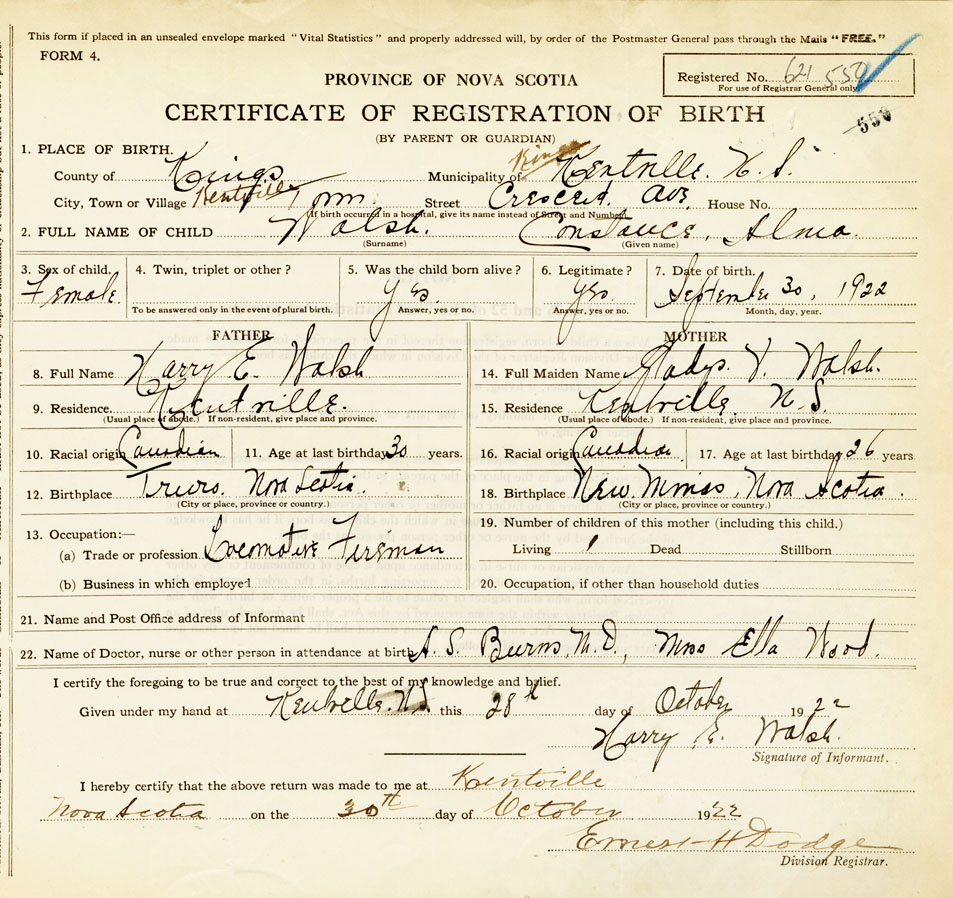 This form if placed in an unsealed envelope marked "Vital Statistics" and properly addressed will, by order of the Postmaster General pass through the Mails "FREE."
FORM 4.
Registered No. 621 550
For use of Registrar General only
550
PROVINCE OF NOVA SCOTIA
CERTIFICATE OF REGISTRATION OF BIRTH
(BY PARENT OR GUARDIAN)
1. PLACE OF BIRTH.
County of Kings Municipality of Kings Kentville. N.S.
City, Town or Village Kentville Town. Street Crescent Ave. House No.
(If birth occurred in a hospital, give its name instead of Street and Number)
2. FULL NAME OF CHILD Walsh. Constance, Alma.
(Surname) (Given name)
3. Sex of child. 4. Twin, triplet or other? 5. Was the child born alive? 6. Legitimate? 7. Date of birth.
Female. Yes. Yes. September 30, 1922
To be answered only in the event of plural birth. Answer, yes or no. Answer, yes or no. Month, day, year.
FATHER
8. Full Name Harry E. Walsh
9. Residence. Kentville.
(Usual place of abode.) If non-resident, give place and province.
10. Racial origin Canadian 11. Age at last birthday 30 years.
12. Birthplace Truro. Nova Scotia.
(City or place, province or country.)
13. Occupation:—
(a) Trade or profession Locomotive Fireman
(b) Business in which employed
MOTHER
14. Full Maiden Name Gladys. V. Walsh.
15. Residence Kentville, N.S.
(Usual place of abode.) If non-resident, give place and province.
16. Racial origin Canadian. 17. Age at last birthday 26 years
18. Birthplace New Minas, Nova Scotia.
(City or place, province or country.)
19. Number of children of this mother (including this child.)
Living 1 Dead Stillborn
20. Occupation, if other than household duties
21. Name and Post Office address of Informant
22. Name of Doctor, nurse or other person in attendance at birth A. S. Burns, M.D., Miss Ella Wood.
I certify the foregoing to be true and correct to the best of my knowledge and belief.
Given under my hand at Kentville. N.S. this 28th day of October 1922
Harry E. Walsh.
Signature of Informant.
I hereby certify that the above return was made to me at Kentville
Nova Scotia on the 30th day of October 1922
Ernest H Dodge
Division Registrar.